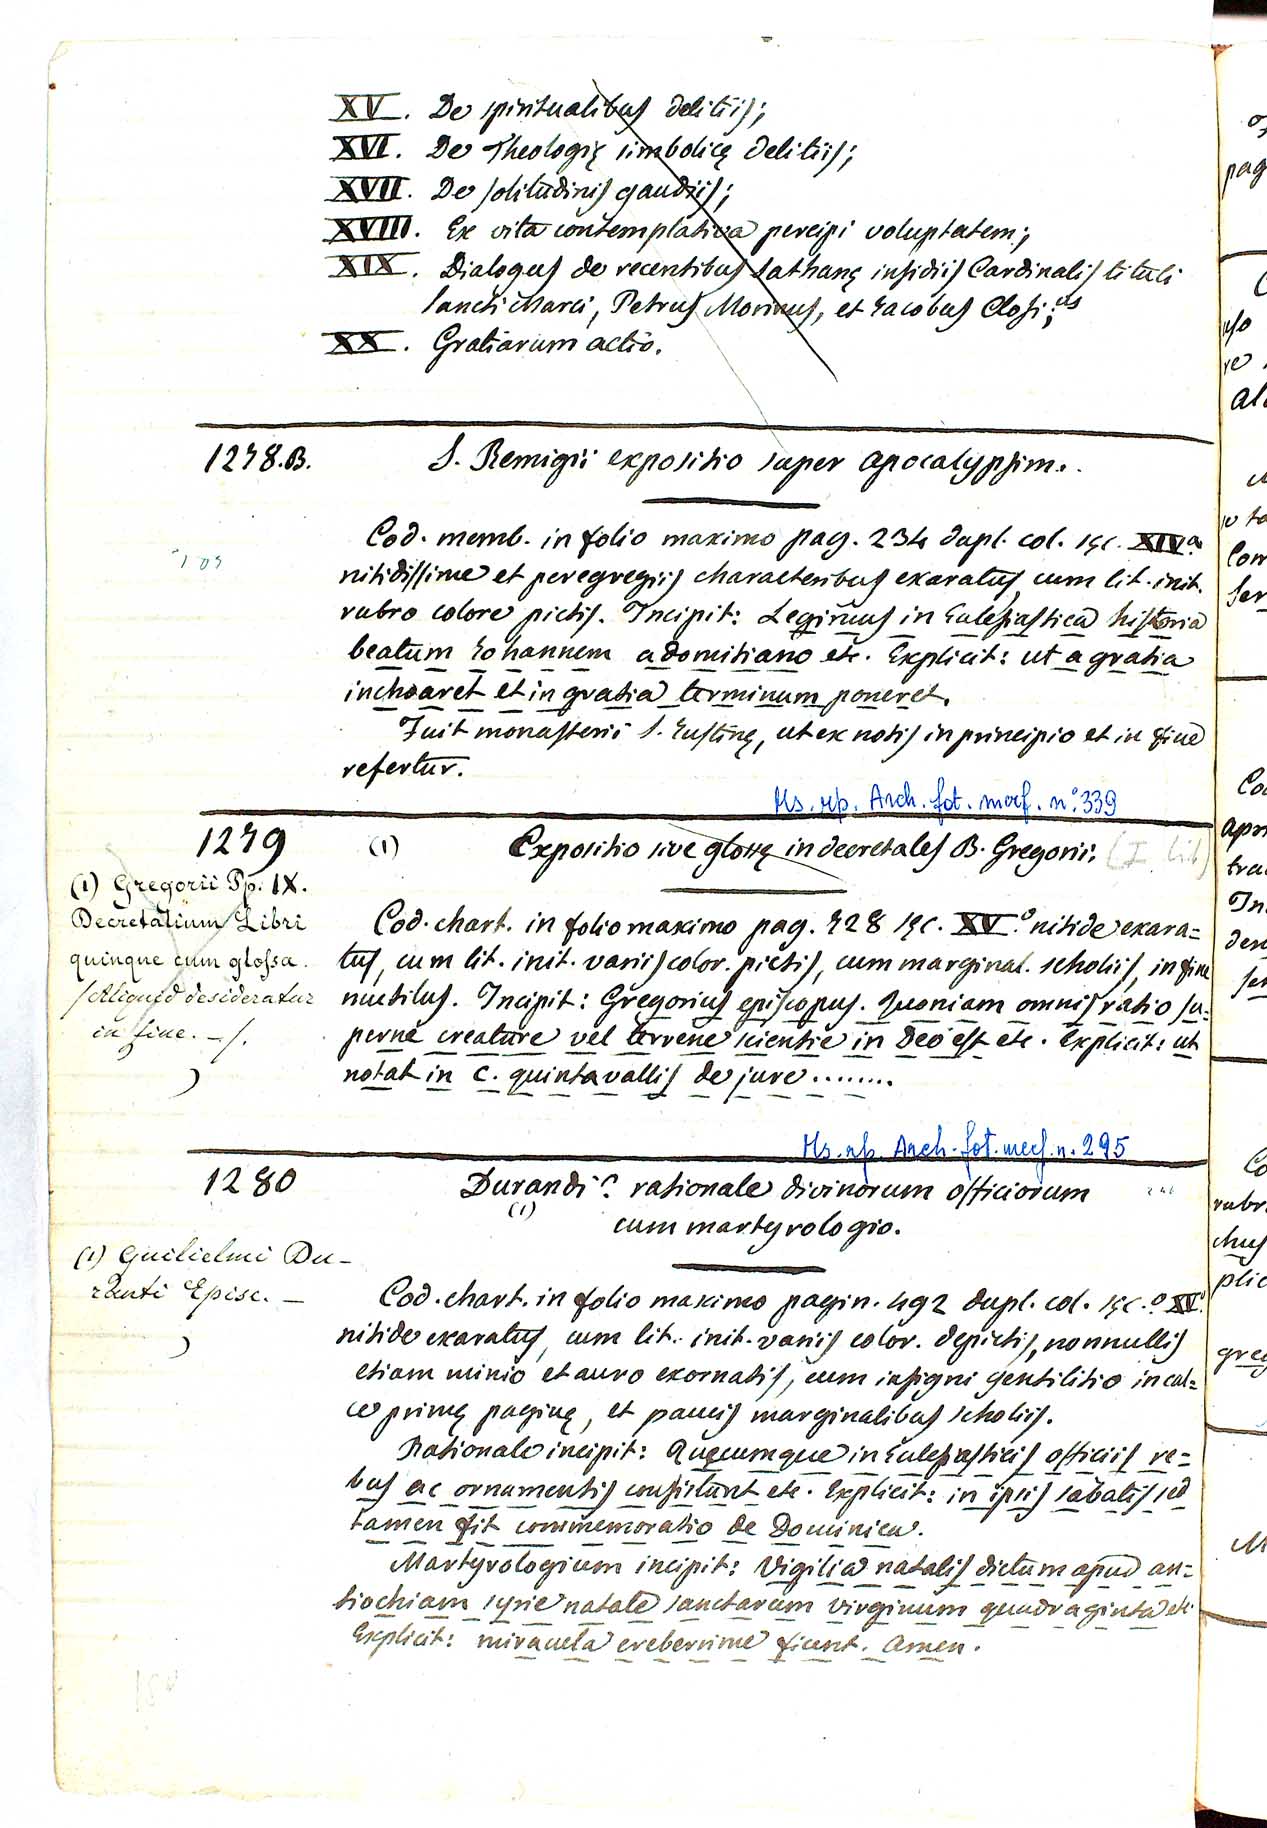 XV. De spiritualibus delitiis;
XVI. De Theologię simbolicę delitiis;
XVII. De solitudinis gaudiis;
XVIII. Ex vita contemplativa percipi voluptatem;
XIX. Dialogus de recentibus Sathanę insidiis Cardinalis tituli
Sancti Marci, Petrus Morinus, et Jacobus Closius;
XX. Gratiarum actio.
1278.B. S. Remigii expositio super Apocalypsim.
Cod. memb. in folio maximo pag. 234 dupl. col. sęc. XIV.º
nitidissime et peregregiis characteribus exaratus, cum lit. init.
rubro colore pictis. Incipit: Legimus in Eclesiastica historia
beatum Johannem adomitiano etc. Explicit: ut a gratia
inchoaret et in gratia terminum poneret.
Fuit monasterii S. Justinę, ut ex notis in principio et in fine
refertur.
Ms. rip. Arch. fot. mscf. n.º 339
1279 (1) Expositio sive glossę in decretales B. Gregorii: (I lib)
(1) Gregorii Pp. IX.
Decretalium Libri
quinque cum glossa.
/Aliquid desideratur
in fine. - /.
Cod. chart. in folio maximo pag. 728 sęc. XV.º nitide exara=
tus, cum lit. init. variis color. pictis, cum marginal. scholiis, in fine
mutilus. Incipit: Gregorius episcopus. Quoniam omnis ratio su=
perne creature vel terrene scientie in Deo est etc. Explicit: ut
notat in C. quintavallis de jure ........
Ms. rip. Arch. fot. mscf. n. 295
1280 Durandi (1) rationale divinorum officiorum
cum martyrologio.
(1) Guilielmi Du-
ranti Episc. -
Cod. chart. in folio maximo pagin. 492 dupl. col. sęc.º XV.º
nitide exaratus, cum lit. init. variis color. depictis, nonnullis
etiam minio et auro exornatis, cum insigni gentilitio in cal=
ce primę paginę, et paucis marginalibus scholiis.
Rationale incipit: Quęcumque in Eclesiasticis officiis re=
bus ac ornamentis consistunt etc. Explicit: in ipsis sabatis sed
tamen fit commemoratio de Dominica.
Martyrologium incipit: Vigilia natalis dictum apud an=
tiochiam syrie natale sanctarum virginum quadraginta etc.
Explicit: miracula creberrime fiunt. Amen.